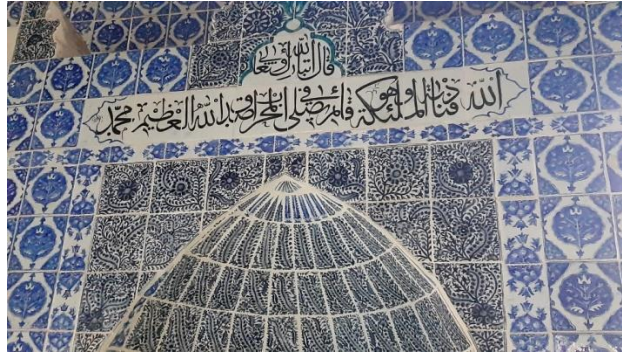 قال الله تبارك وتعالى
الله فنادته الملائكة وهو قائم يصلي في المحراب صدق الله العظيم محمد